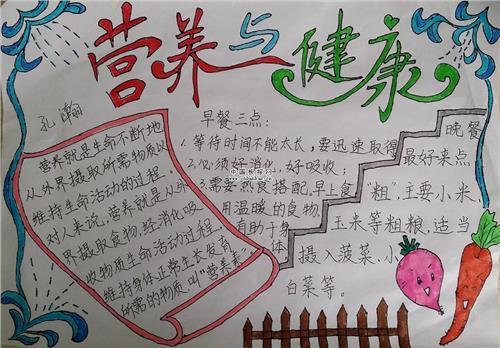 营养与健康
孔瀚
营养就是生命不断地
从外界摄取所需物质以
维持生命活动的过程。
对人来说,营养就是从外
界摄取食物,经消化吸
收物质生命活动过程,
维持身体正常生长发育
所需的物质叫“营养素”
早餐三点:
1.等待时间不能太长,要迅速取得
2.必须好消化,好吸收;
3.需要热食搭配,早上食
用温暖的食物,
有助于身
体
晚餐
最好来点
“粗”,主要小米,
玉米等粗粮,适当
摄入菠菜,小
白菜等。